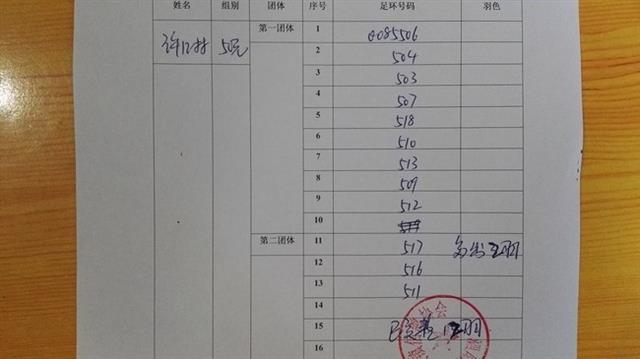 姓名 组别 团体 序号 足环号码 羽色
50元 第一团体 1 0085506
2 504
3 503
4 507
5 518
6 510
7 513
8 509
9 512
10
第二团体 11 517
12 516
13 511
14
15 羽
16